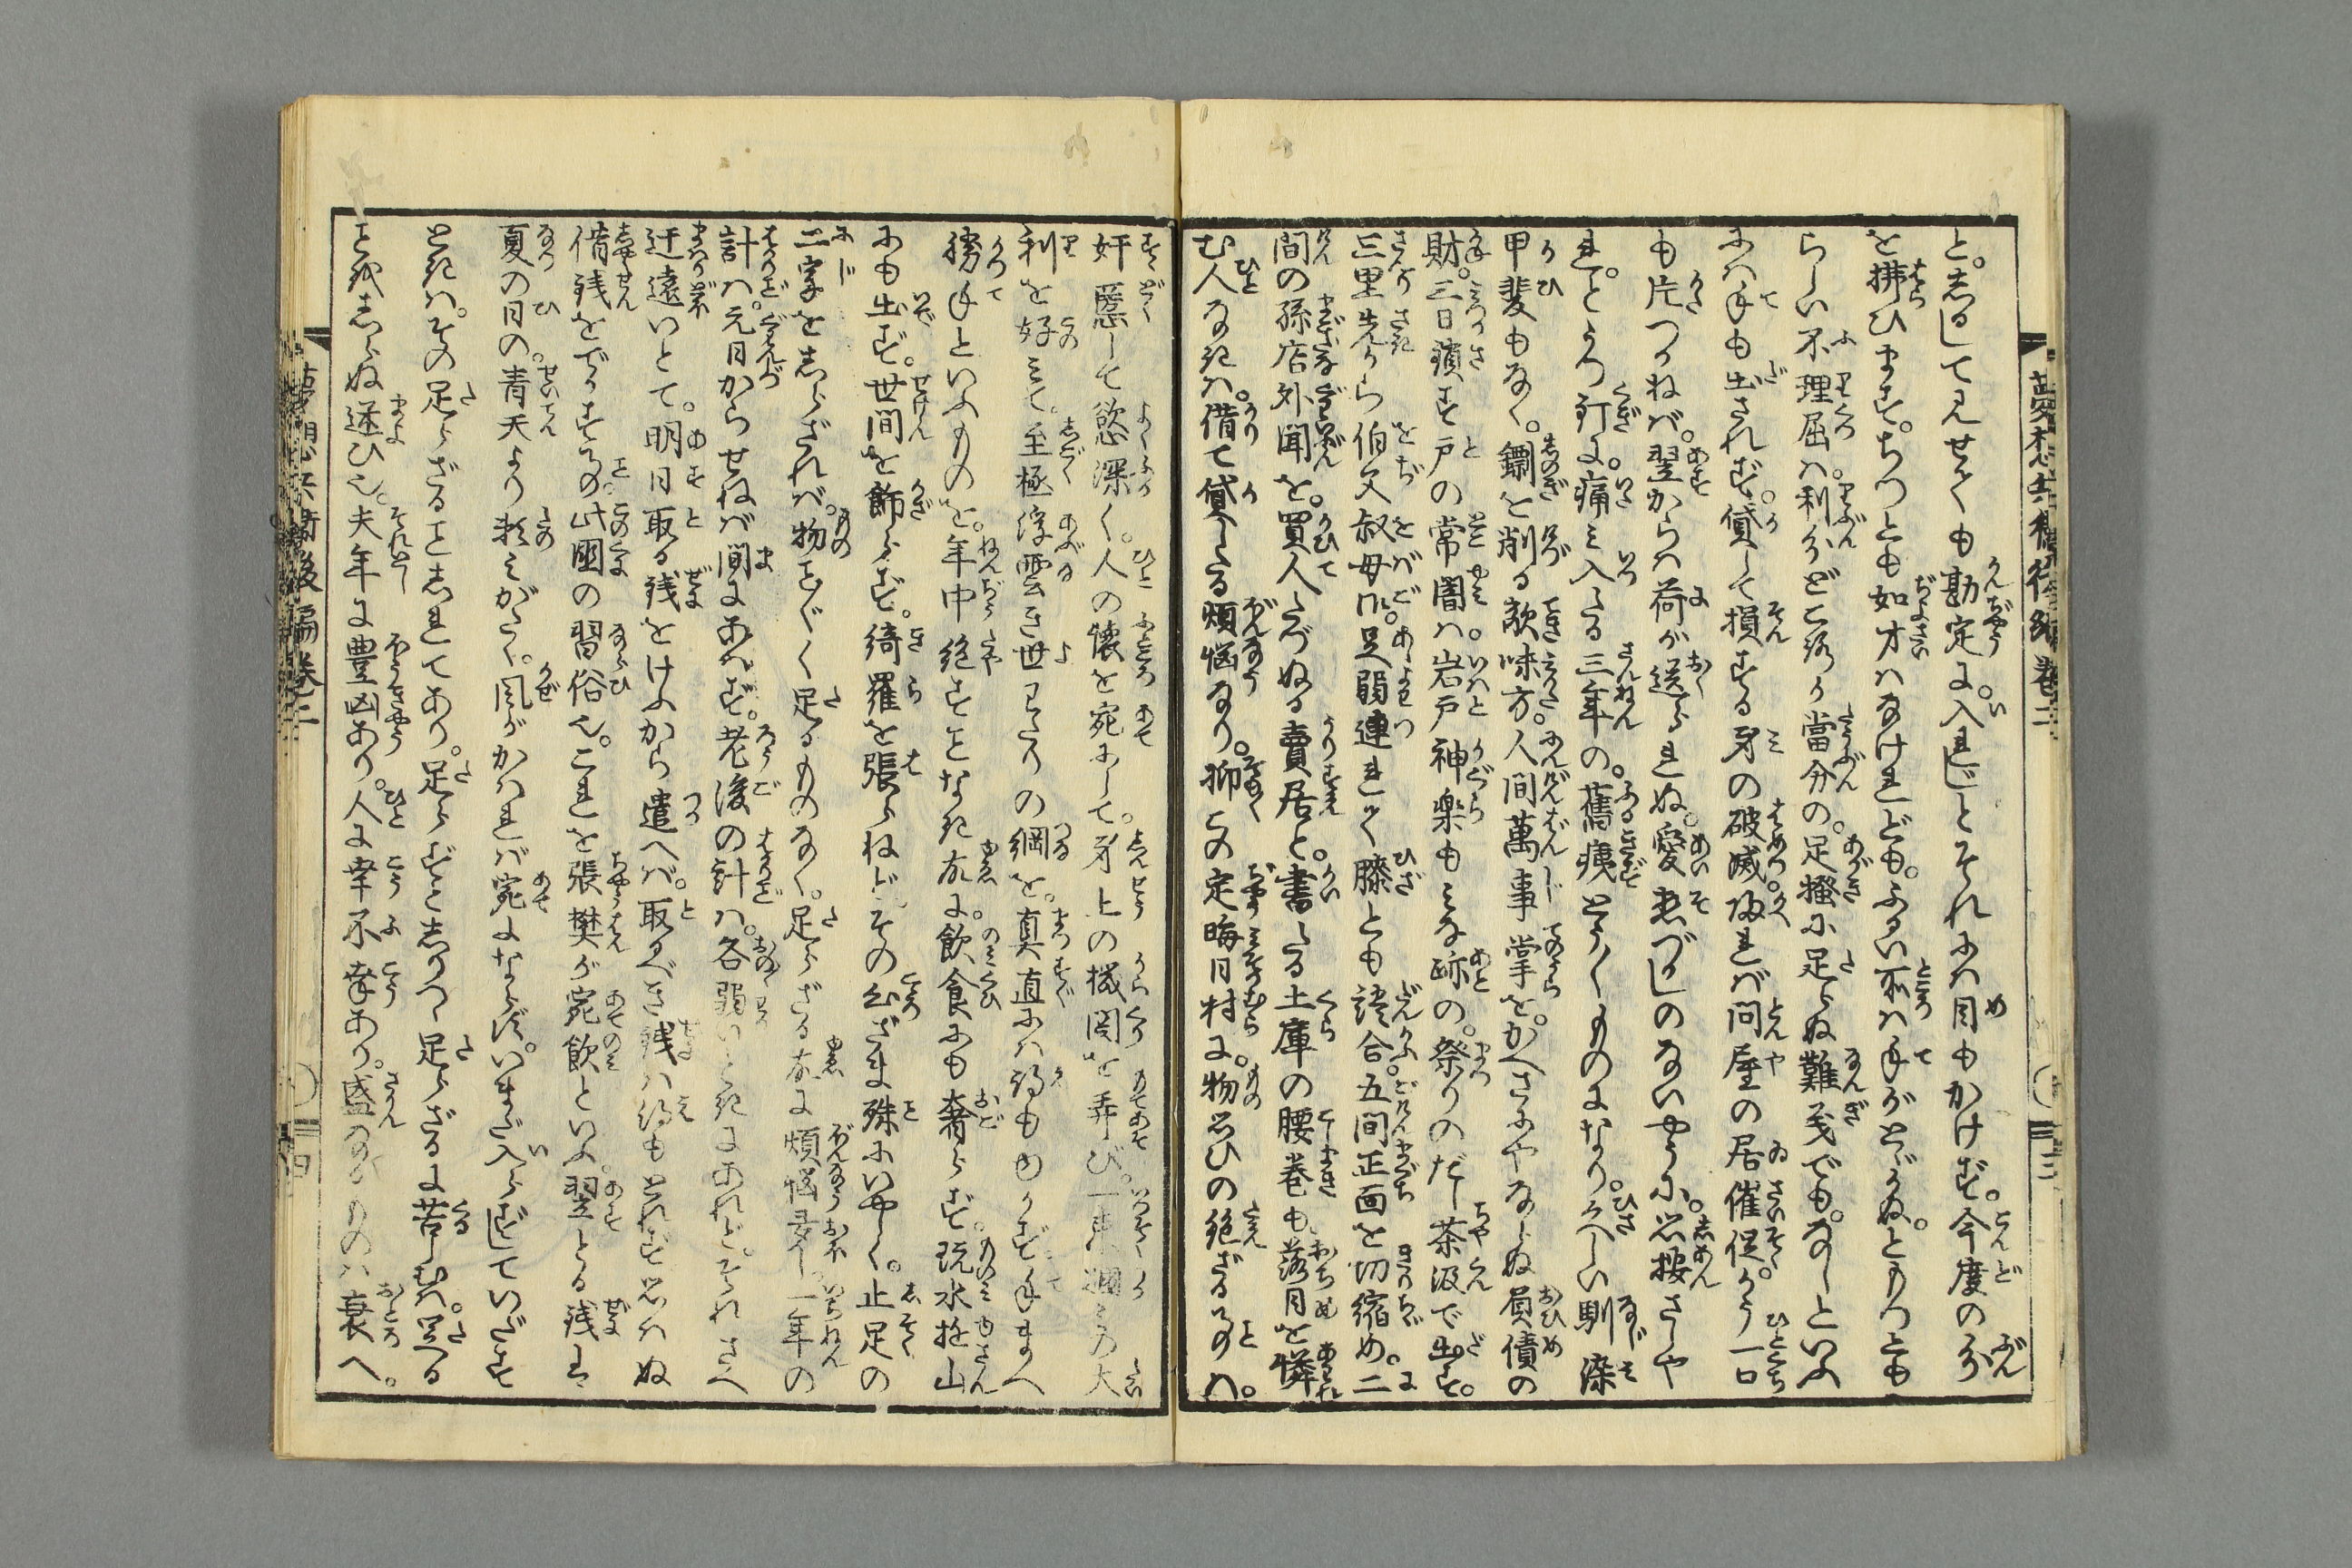 夢想兵衛後編巻二
と。志らして見せても勘定に。入れじとそれには目もかけず。今度の分
を拂ひます。ちつとも如才はなけれども。ふるい所は手がとゞかぬ。ともつとも
らしい不理屈は。利分どころか當分の。足掻に足らぬ難義でも。なしといふ
には手も出されず。貸して損する身の破滅。帰れば問屋の居催促。かう一口
も片つかねば。翌からは荷が送られぬ。愛想づかしのないやうに。思按さしや
れ。とうつ釘に。痛み入たる三年の。舊痍とう〳〵ものになり。久しい馴染
甲斐もなく。鎬を削る敵味方。人間萬事掌を。かへさにやならぬ屓債の
財。三日鎖す戸の常闇は。岩戸神楽もみな跡の。祭りのだし茶汲で出す。
三里先から伯父叔母御。足弱連れて膝とも談合。五間正面を切縮め。二
間の孫店外聞を。買人たづぬる賣居と。書たる土庫の腰巻も。落目を憐
む人なきは。借て貸したる煩悩なり。抑この定晦日村に。物思ひの絶ざる事は。
奸悪して慾深く。人の懐を宛にして。身上の機関を弄び。
利を好みて。至極浮雲き世わたりの綱を。真直には得もゆかず手まへ
勝手といふものを。年中絶すことなき故に。飲食にも奢らず。玩水遊山
にも出ず。世間を飾らず。綺羅を張らねどその心ざま殊にいやしく。止足の
二字を志らざれば。物こと〴〵く足るものなく。足らざる故に煩悩多し。一年の
計は。元日からせねば間にあはず。老後の計は。各弱いときにあれど。それさへ
迂遠いとて。明日取る銭をけふから遣へば。取べき銭は得もとれず思はぬ
借銭をでかす事。此國の習俗也。これを張樊が宛飲といふ。翌とる銭は
夏の日の。青天より頼みがたく。風がかはれば宛にならず。いまだ入らずしていだす
ときは。その足らざるを志れてあり。足らずと志りつゝ足らざるに苦しむは。足る
を志らぬ迷ひ也。夫年に豊凶あり。人に幸不幸あり。盛なるものは衰へ。
夢想兵衛後編巻二